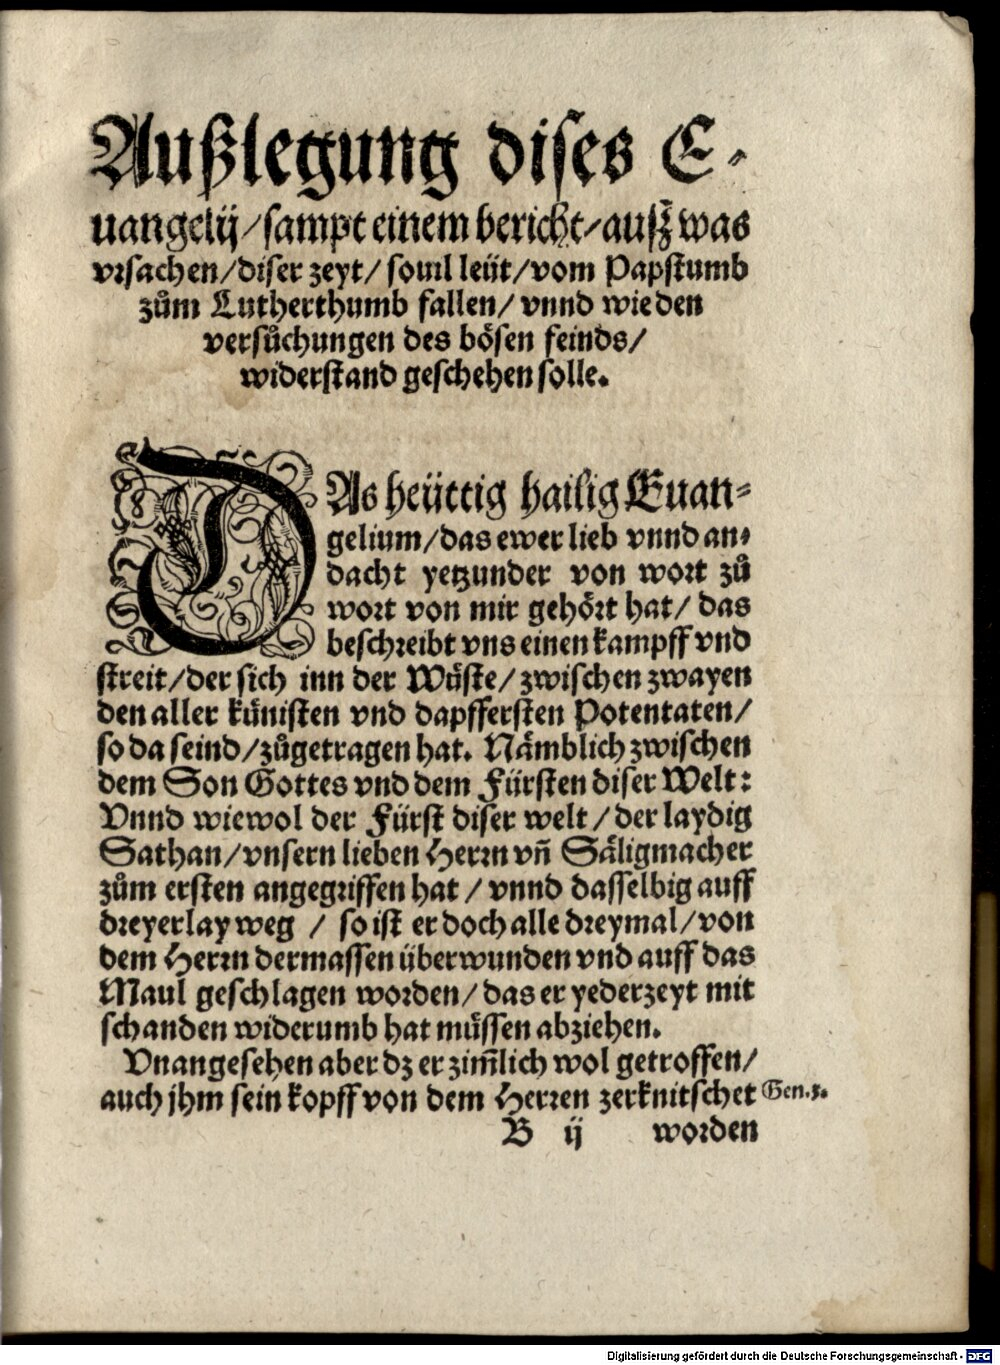 Außlegung dises E-
uangelij/sampt einem bericht/ausz was
vrsachen/diser zeyt/souil leüt/vom Papstumb
zům Lutherthumb fallen/vnnd wie den
versůchungen des bösen feinds/
widerstand geschehen solle.
DAs heüttig hailig Euan-
gelium/das ewer lieb vnnd an-
dacht yetzunder von wort zů
wort von mir gehört hat/das
beschreibt vns einen kampff vnd
streit/der sich inn der Wüste/zwischen zwayen
den aller künisten vnd dapffersten Potentaten/
so da seind/zůgetragen hat. Nämblich zwischen
dem Son Gottes vnd dem Fürsten diser Welt:
Vnnd wiewol der Fürst diser welt/der laydig
Sathan/vnsern lieben Herrn vñ Säligmacher
zům ersten angegriffen hat/vnnd dasselbig auff
dreyerlay weg/so ist er doch alle dreymal/von
dem Herrn dermassen überwunden vnd auff das
Maul geschlagen worden/das er yederzeyt mit
schanden widerumb hat müssen abziehen.
Vnangesehen aber dz er zim̃lich wol getroffen/
auch jhm sein kopff von dem Herren zerknitschet Gen.3.
B ij worden
Digitalisierung gefördert durch die Deutsche Forschungsgemeinschaft - DFG